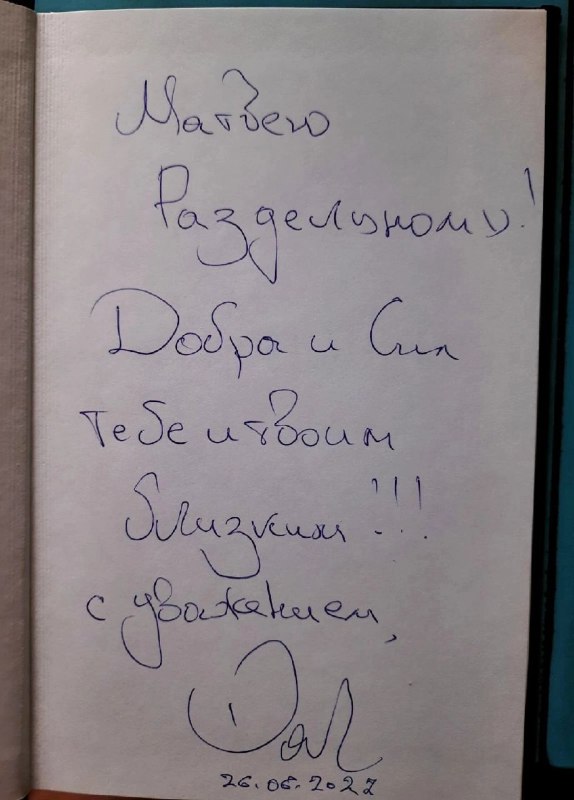 Матвею
Раздельному!
Добра и Сил
тебе и твоим
близким!!!
с уважением,
26.06.2022